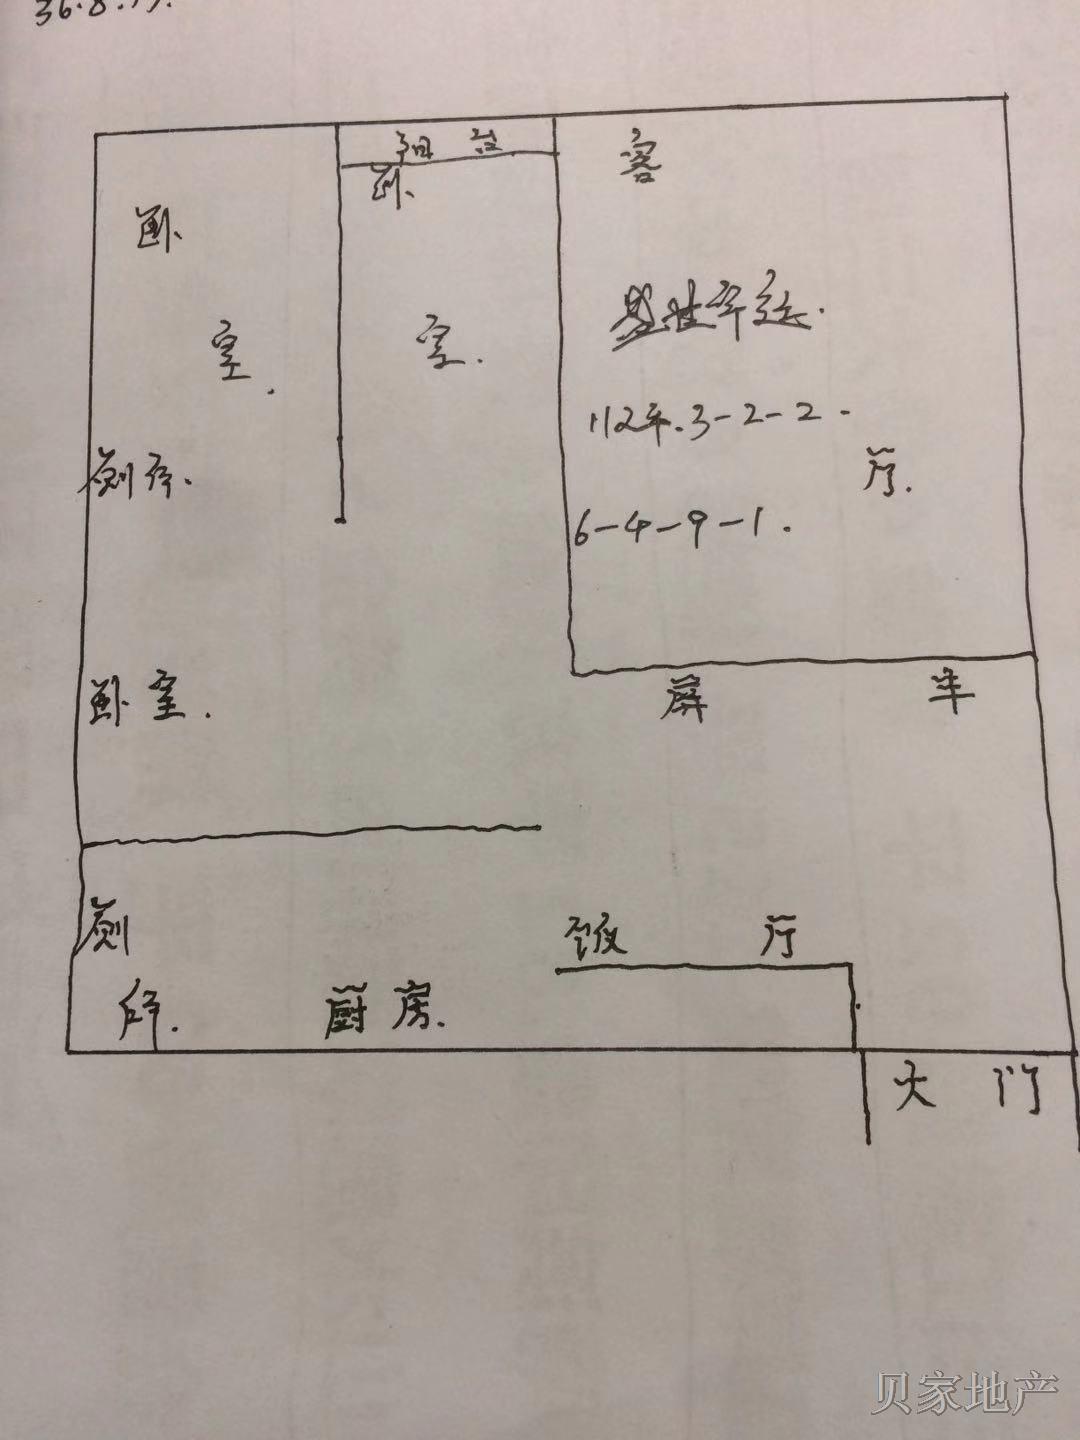 36.8.19.
阳 台
客
卧.
卧.
室.
室.
盛世华运.
112平.3-2-2.
厅.
厕所.
6-4-9-1.
卧室.
屏 车
厕
所.
饭 厅
厨房.
大 门
贝家地产